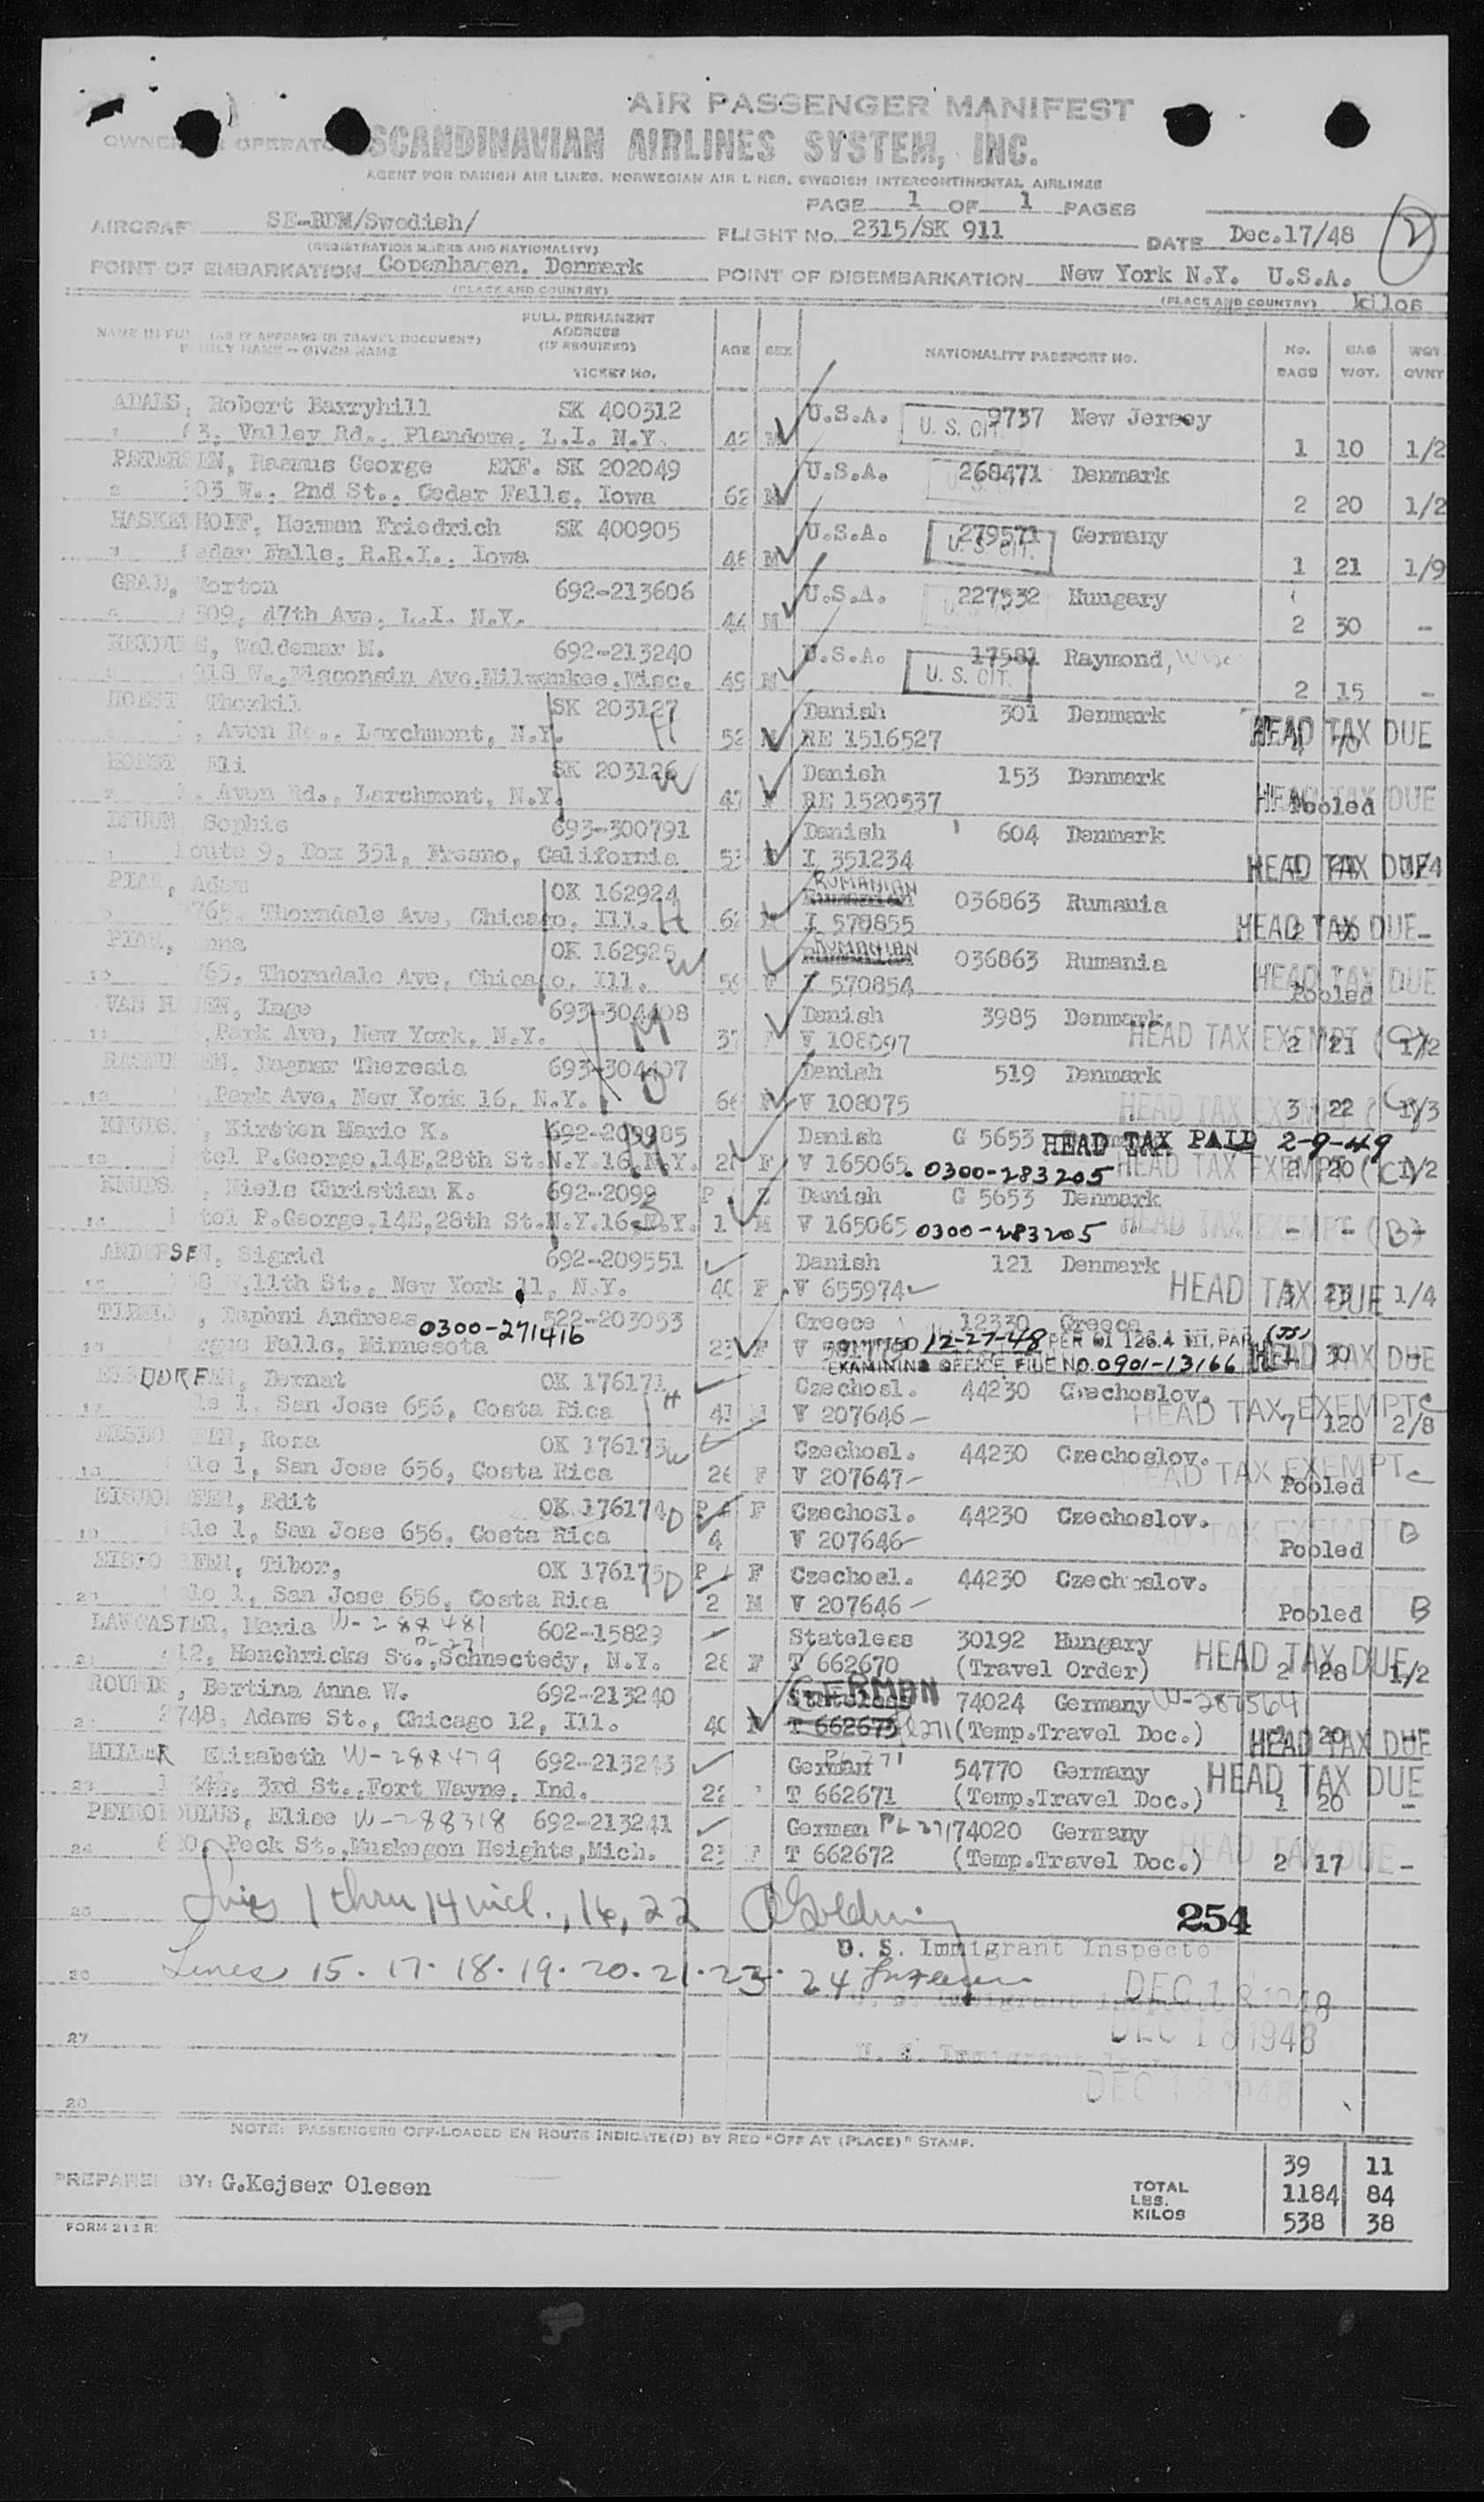 AIR PASSENGER MANIFEST
SCANDINAVIAN AIRLINES SYSTEM, INC.
AGENT FOR DANISH AIR LINES. NORWEGIAN AIR LINES. SWEDISH INTERCONTINENTAL AIRLINES
PAGE 1 OF 1 PAGES
AIRCRAF SE-BDM/Swedish/ FLIGHT No. 2315/SK 911 DATE Dec.17/48 2
(REGISTRATION MARKS AND NATIONALITY)
POINT OF EMBARKATION Copenhagen. Denmark POINT OF DISEMBARKATION New York N.Y. U.S.A.
(PLACE AND COUNTRY) (PLACE AND COUNTRY) kilos
NAME IN FUL (AS IT APPEARS IN TRAVEL DOCUMENT) FULL PERMANENT ADDRESS (IF REQUIRED) TICKET No. AGE SEX NATIONALITY PASSPORT No. No. BAGS BAG WGT. WGT OVNT
ADAMS, Robert Barryhill SK 400312 U.S.A. 9737 New Jersey
3, Valley Rd., Plandome, L.I. N.Y. 42 M U. S. CIT. 1 10 1/2
PETERSEN, Rasmus George EXF. SK 202049 U.S.A. 268471 Denmark
2 03 W., 2nd St., Cedar Falls, Iowa 62 M 2 20 1/2
HOFF, Herman Friedrich SK 400905 U.S.A. 279571 Germany
edar Falls, R.R.I., Iowa M U. S. CIT. 1 21 1/9
GRAD, Morton 692-213606 U.S.A. 227532 Hungary
509, 47th Ave, L.I. N.Y. 44 M 2 30 -
Waldemar M. 692-213240 U.S.A. 17581 Raymond, Wisc
918 W., Wisconsin Ave, Milwaukee, Wisc. 49 M U. S. CIT. 2 15 -
HOEST Thorkil SK 203127 H Danish 301 Denmark
, Avon Rd., Larchmont, N.Y. 52 RE 1516527 HEAD TAX DUE
Eli SK 203126 W Danish 153 Denmark
. Avon Rd., Larchmont, N.Y. 47 RE 1520537 HEAD TAX DUE Pooled
BRUUN, Sophie 693-300791 Danish 604 Denmark
oute 9, Box 351, Fresno, California 53 I 351234 HEAD TAX DUE
, Adam OK 162924 RUMANIAN 036863 Rumania
765, Thorndale Ave, Chicago, Ill. H 62 M I 578855 HEAD TAX DUE -
, Anna OK 162925 W RUMANIAN 036863 Rumania
10 765, Thorndale Ave, Chicago, Ill. 59 F I 570854 HEAD TAX DUE Pooled
VAN H EN, Inge 693-304408 M Danish 3985 Denmark
11 ,Park Ave, New York, N.Y. 37 F V 108097 HEAD TAX EXEMPT 2 21 (C) 1/2
EN, Dagmar Theresia 693-304407 D Danish 519 Denmark
12 ,Park Ave, New York 16, N.Y. 66 F V 108075 HEAD TAX EXEMPT 3 22 1/3
KNUDS , Kirsten Marie K. 692-209985 M Danish G 5653 HEAD TAX PAID 2-9-49
13 tel P.George,14E,28th St.N.Y.16,N.Y. F V 165065. 0300-283205 HEAD TAX EXEMPT 2 20 (C) 1/2
KNUDS , Niels Christian K. 692-2098 Danish G 5653 Denmark
14 tel P.George,14E,28th St.N.Y.16,N.Y. 1 M V 165065 0300-283205 HEAD TAX EXEMPT - - (B)
ANDERSEN, Sigrid 692-209551 Danish 121 Denmark
8 W,11th St., New York 11, N.Y. 40 F V 655974 HEAD TAX DUE 1/4
, Daphni Andreas 0300-271416 522-203053 Greece 12330 Greece
rgus Falls, Minnesota 23 F V 12-27-48 PER OI 126.4 (JS) HEAD TAX DUE
EXAMINING OFFICE FILE NO. 0901-13166
EISDORFER, Bernat OK 176171 H Czechosl. 44230 Czechoslov.
17 le 1, San Jose 656, Costa Rica 41 M V 207646 HEAD TAX EXEMPT C 7 120 2/8
Roza OK 176173 W Czechosl. 44230 Czechoslov.
18 le 1, San Jose 656, Costa Rica 26 F V 207647 HEAD TAX EXEMPT C Pooled
Edit OK 176174 D F Czechosl. 44230 Czechoslov.
19 le 1, San Jose 656, Costa Rica 4 V 207646 Pooled B
Tibor, OK 176175 D F Czechosl. 44230 Czechoslov.
20 le 1, San Jose 656, Costa Rica 2 M V 207646 Pooled B
LANCASTER, Maria W-288481 602-15829 Stateless 30192 Hungary
21 12, Henchricks St., Schnectedy, N.Y. 28 F T 662670 (Travel Order) HEAD TAX DUE 2 28 1/2
ROUNDS, Bertina Anna W. 692-213240 Stateless GERMAN 74024 Germany W-287564
2748, Adams St., Chicago 12, Ill. 40 F T 662673 (Temp.Travel Doc.) HEAD TAX DUE
MILLER Elisabeth W-288479 692-213243 German PL 271 54770 Germany
23 3rd St., Fort Wayne, Ind. 22 T 662671 (Temp.Travel Doc.) HEAD TAX DUE 1 20 -
PETROPOULUS, Elise W-288318 692-213241 German PL 271 74020 Germany
24 Peck St., Muskegon Heights, Mich. 23 F T 662672 (Temp.Travel Doc.) HEAD TAX DUE 2 17 -
25 Lines 1 thru 14 incl., 16, 22 254
U. S. Immigrant Inspecto
26 Lines 15. 17. 18. 19. 20. 21. 23. 24 DEC 18 1948
27 DEC 18 1948
U. S. Immigrant
DEC 18 1948
28
NOTE: PASSENGERS OFF-LOADED EN ROUTE INDICATE(D) BY RED "OFF AT (PLACE)" STAMP.
39 11
PREPARED BY: G.Kejser Olesen TOTAL LBS. 1184 84
KILOS 538 38
FORM 212 R